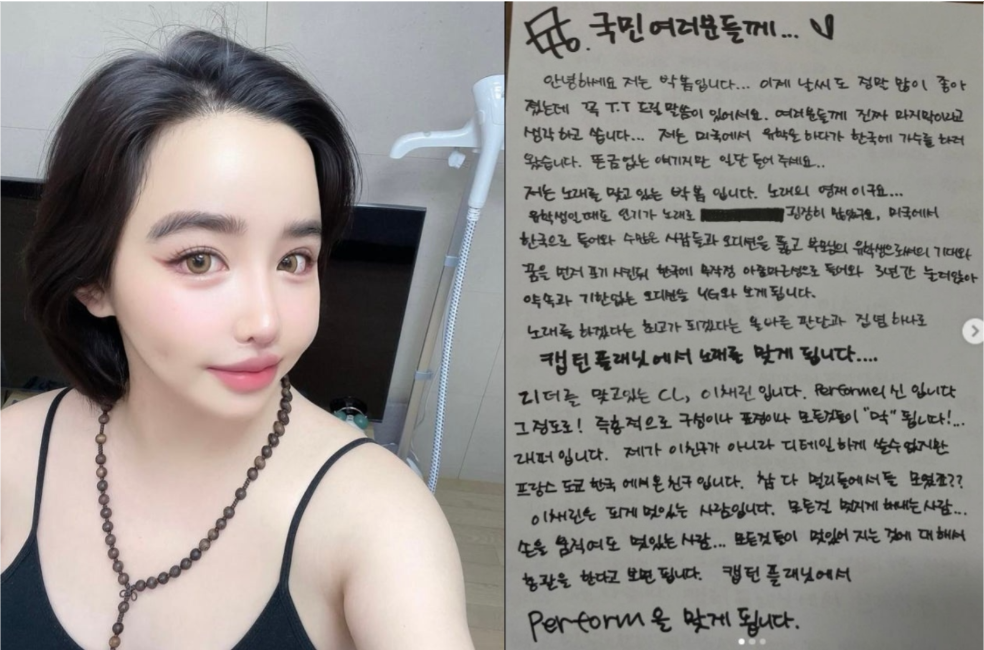 국민 여러분들께...
안녕하세요 저는 박봄입니다... 이제 날씨도 정말 많이 좋아
졌는데 꼭 T.T 드릴 말씀이 있어서요. 여러분들께 진짜 마지막이라고
생각하고 씁니다... 저는 미국에서 유학을 하다가 한국에 가수를 하러
왔습니다. 뜬금없는 얘기지만 일단 들어 주세요..
저는 노래를 맞고 있는 박봄 입니다. 노래의 영재 이구요...
유학생인 때도 인기가 노래로 굉장히 많았구요, 미국에서
한국으로 들어와 수많은 사람들과 오디션을 뚫고 부모님의 유학생으로써의 기대와
꿈을 먼저 포기 시킨뒤 한국에 무작정 들어와 3년간 눌러앉아
약속과 기한없는 오디션을 YG와 보게 됩니다.
노래를 하겠다는 최고가 되겠다는 올바른 판단과 집념 하나로
캡틴 플래닛에서 노래를 맞게 됩니다....
리더를 맞고있는 CL, 이채린 입니다. Perform의 신 입니다
그정도로! 즉흥적으로 구성이나 표정이나 모든것들이 "막" 됩니다!...
래퍼 입니다. 제가 이친구가 아니라 디테일 하게 쓸수 없지만
프랑스 도쿄 한국 에서온 친구 입니다. 참 다 멀리들에서들 모였죠??
이채린은 되게 멋있는 사람입니다. 모든걸 멋지게 해내는 사람...
손을 움직여도 멋있는 사람... 모든것들이 멋있어 지는 것에 대해서
총괄을 한다고 보면 됩니다. 캡틴 플래닛에서
Perform을 맞게 됩니다.